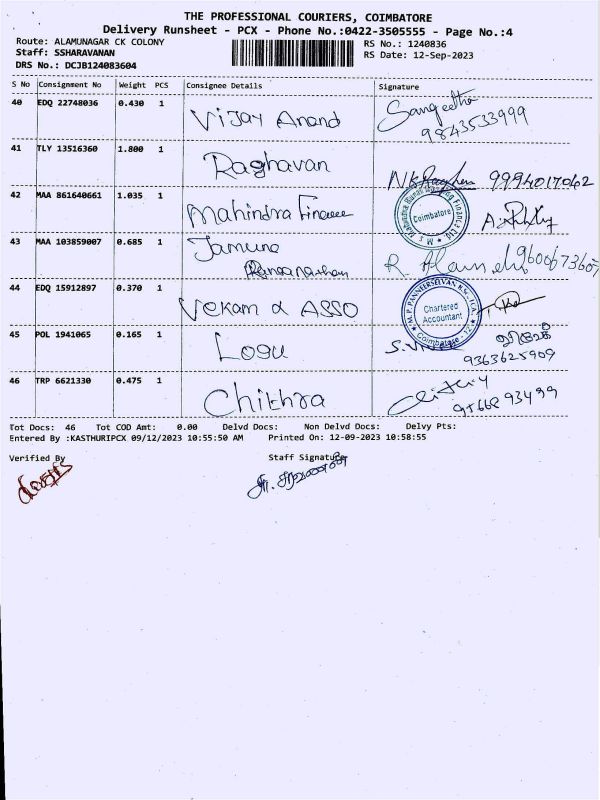 THE PROFESSIONAL COURIERS, COIMBATORE
Delivery Runsheet - PCX - Phone No.:0422-3505555 - Page No.:4
Route: ALAMUNAGAR CK COLONY
Staff: SSHARAVANAN
DRS No.: DCJB124083604
RS No.: 1240836
RS Date: 12-Sep-2023
S No Consignment No Weight PCS Consignee Details Signature
40 EDQ 22748036 0.430 1 Vijay Anand Sangeetha
9843533999
41 TLY 13516360 1.800 1 Raghavan
9994017042
42 MAA 861640661 1.035 1 Mahindra Finance
Coimbatore
43 MAA 103859007 0.685 1 Jamuna
R
44 EDQ 15912897 0.370 1 Vekam & ASSO
M.P. PANNEERSELVAN, Chartered Accountant Coimbatore - 12
45 POL 1941065 0.165 1 Logu
9363625909
46 TRP 6621330 0.475 1 Chithra
93499
Tot Docs: 46 Tot COD Amt: 0.00 Delvd Docs: Non Delvd Docs: Delvy Pts:
Entered By :KASTHURIPCX 09/12/2023 10:55:50 AM Printed On: 12-09-2023 10:58:55
Verified By Staff Signature